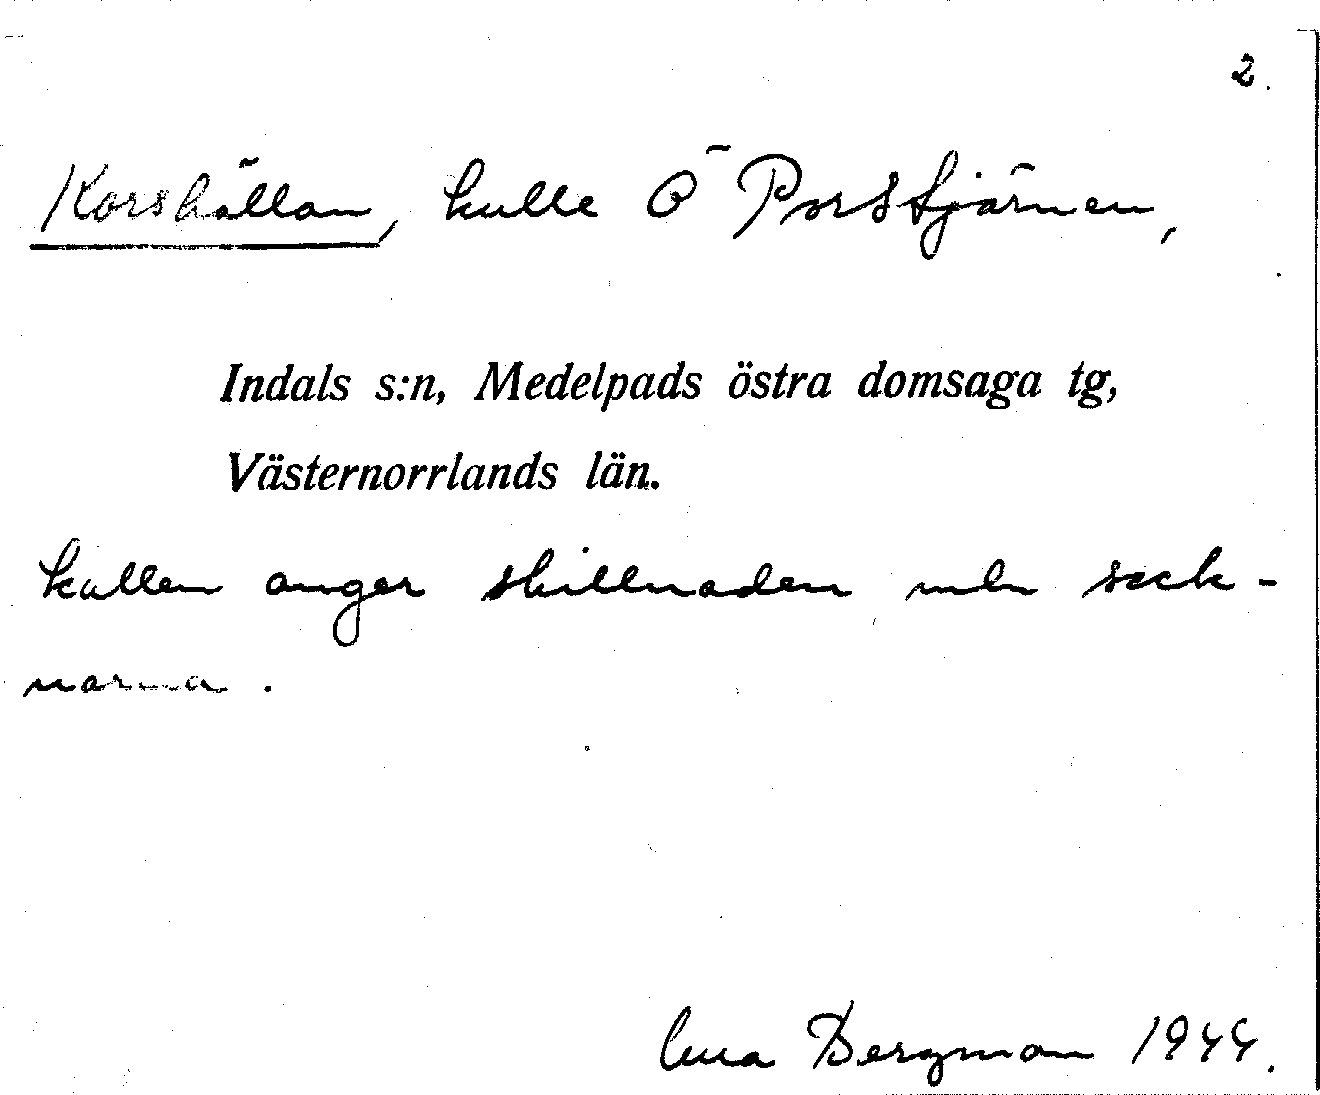 2.
Korshällan, kulle Ö Porstjärnen,
Indals s:n, Medelpads östra domsaga tg,
Västernorrlands län.
kullen anger skillnaden mln sock-
narna.
Bergman 1944.